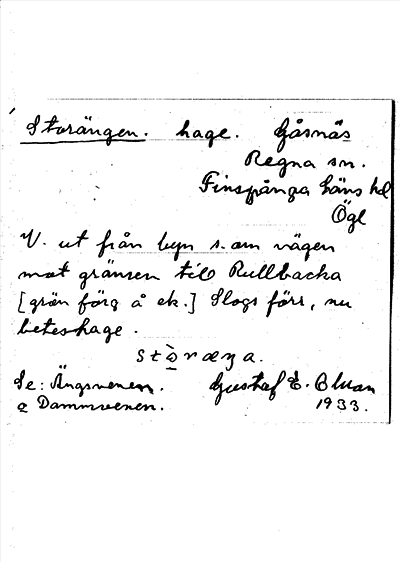 Storängen. hage. Gåsnäs
Regna sn.
Finspånga läns hd
Ögl
V. ut från byn s. om vägen
mot gränsen till Rullbacka
[grön färg å ek.] Slogs förr, nu
beteshage.
Se: Ängsvenen. Gustaf E. Ohman
o Dammvenen. 1933.